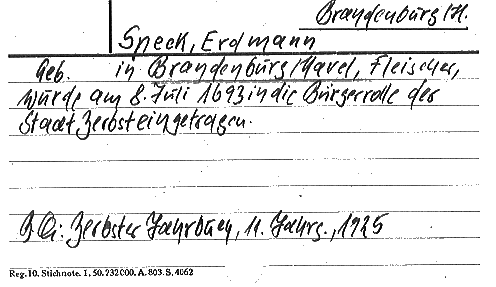 Brandenburg/H.
Speck, Erdmann
Geb. in Brandenburg/Havel, Fleischer,
wurde am 8. Juli 1693 in die Bürgerrolle der
Stadt Zerbst eingetragen.
Zerbster Jahrbuch, 11. Jahrg., 1925
Reg. 10. Stichnote. I, 50. 232000. A. 803. S. 4062